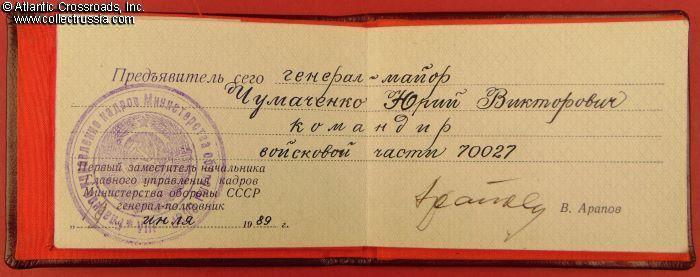 © Atlantic Crossroads, Inc.
www.collectrussia.com
Предъявитель сего генерал-майор
Чумаченко Юрий Викторович
командир
войсковой части 70027
Первый заместитель начальника
Главного управления кадров
Министерства обороны СССР
генерал-полковник
В. Арапов
„ июля 1989 г.